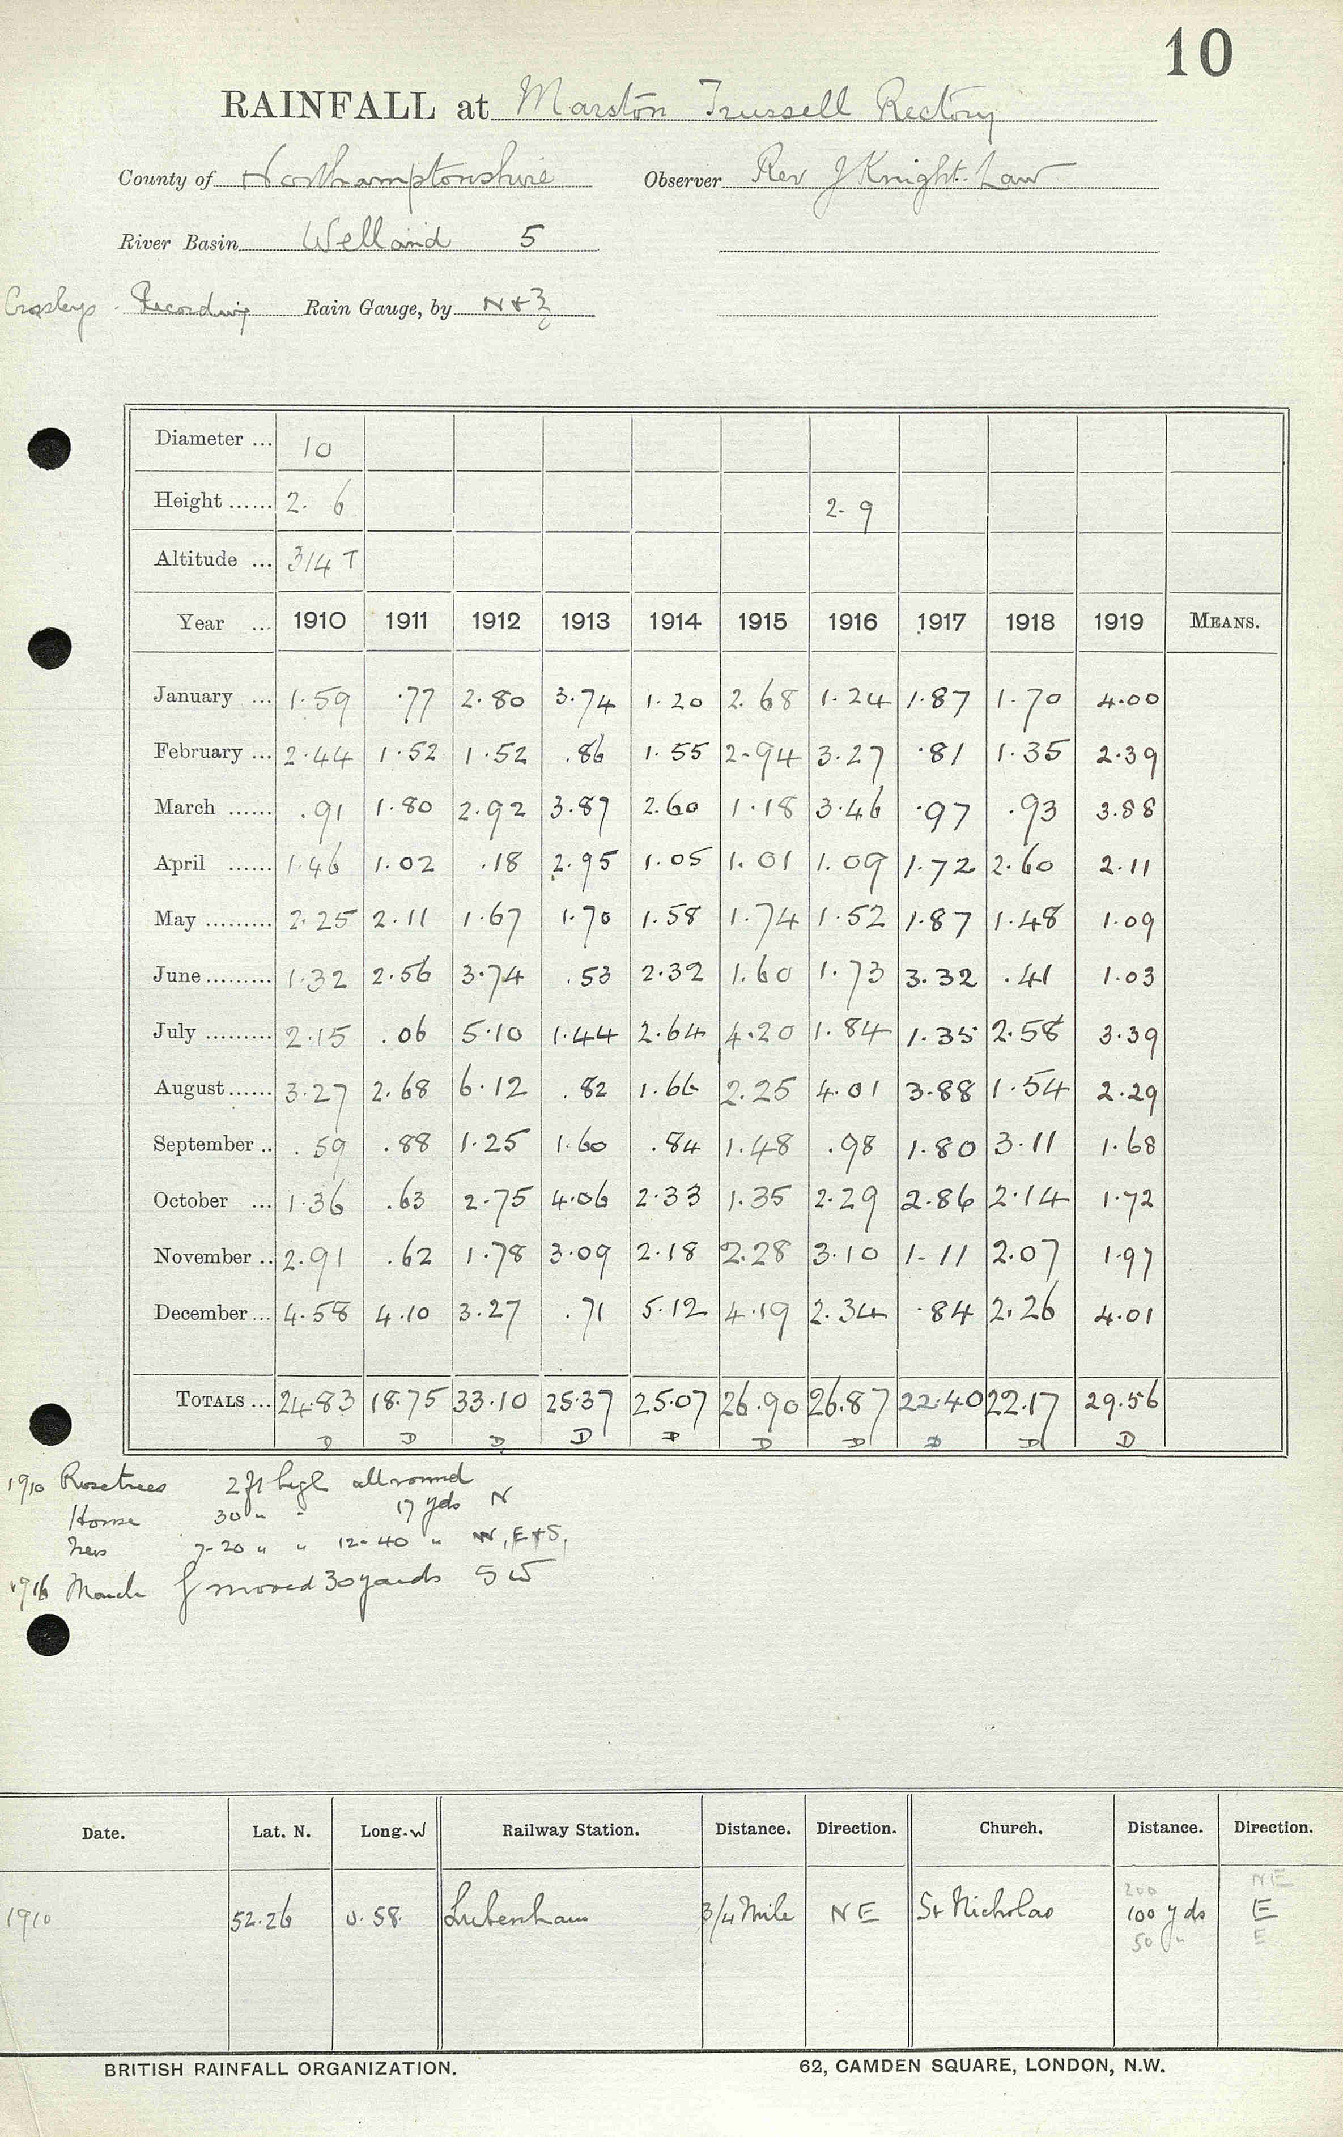 10
RAINFALL at Marston Trussell Rectory
County of Northamptonshire Observer Rev J Knight-Law
River Basin Welland 5
Crosleys Recording Rain Gauge, by N & Z
Diameter ... 10
Height ...... 2. 6 2. 9
Altitude ... 314 T
Year ... 1910 1911 1912 1913 1914 1915 1916 1917 1918 1919 MEANS.
January ... 1.59 .77 2.80 3.74 1.20 2.68 1.24 1.87 1.70 4.00
February ... 2.44 1.52 1.52 .86 1.55 2.94 3.27 .81 1.35 2.39
March ...... .91 1.80 2.92 3.87 2.60 1.18 3.46 .97 .93 3.88
April ...... 1.46 1.02 .18 2.95 1.05 1.01 1.09 1.72 2.60 2.11
May ......... 2.25 2.11 1.67 1.70 1.58 1.74 1.52 1.87 1.48 1.09
June ......... 1.32 2.56 3.74 .53 2.32 1.60 1.73 3.32 .41 1.03
July ......... 2.15 .06 5.10 1.44 2.64 4.20 1.84 1.35 2.58 3.39
August ...... 3.27 2.68 6.12 .82 1.66 2.25 4.01 3.88 1.54 2.29
September .. .59 .88 1.25 1.60 .84 1.48 .98 1.80 3.11 1.68
October ... 1.36 .63 2.75 4.06 2.33 1.35 2.29 2.86 2.14 1.72
November .. 2.91 .62 1.78 3.09 2.18 2.28 3.10 1.11 2.07 1.97
December ... 4.58 4.10 3.27 .71 5.12 4.19 2.34 .84 2.26 4.01
TOTALS ... 24.83 18.75 33.10 25.37 25.07 26.90 26.87 22.40 22.17 29.56
D D D D D D D D D D
1910 Rosetrees 2 ft high all round
House 30 " " 17 yds N
Trees 7-20 " " 12-40 " W, E & S,
1916 March g moved 30 yards SW
Date. Lat. N. Long. W Railway Station. Distance. Direction. Church. Distance. Direction.
200 NE
1910 52.26 0.58 Lubenham 3/4 Mile NE St Nicholas 100 yds E
50 " E
BRITISH RAINFALL ORGANIZATION. 62, CAMDEN SQUARE, LONDON, N.W.